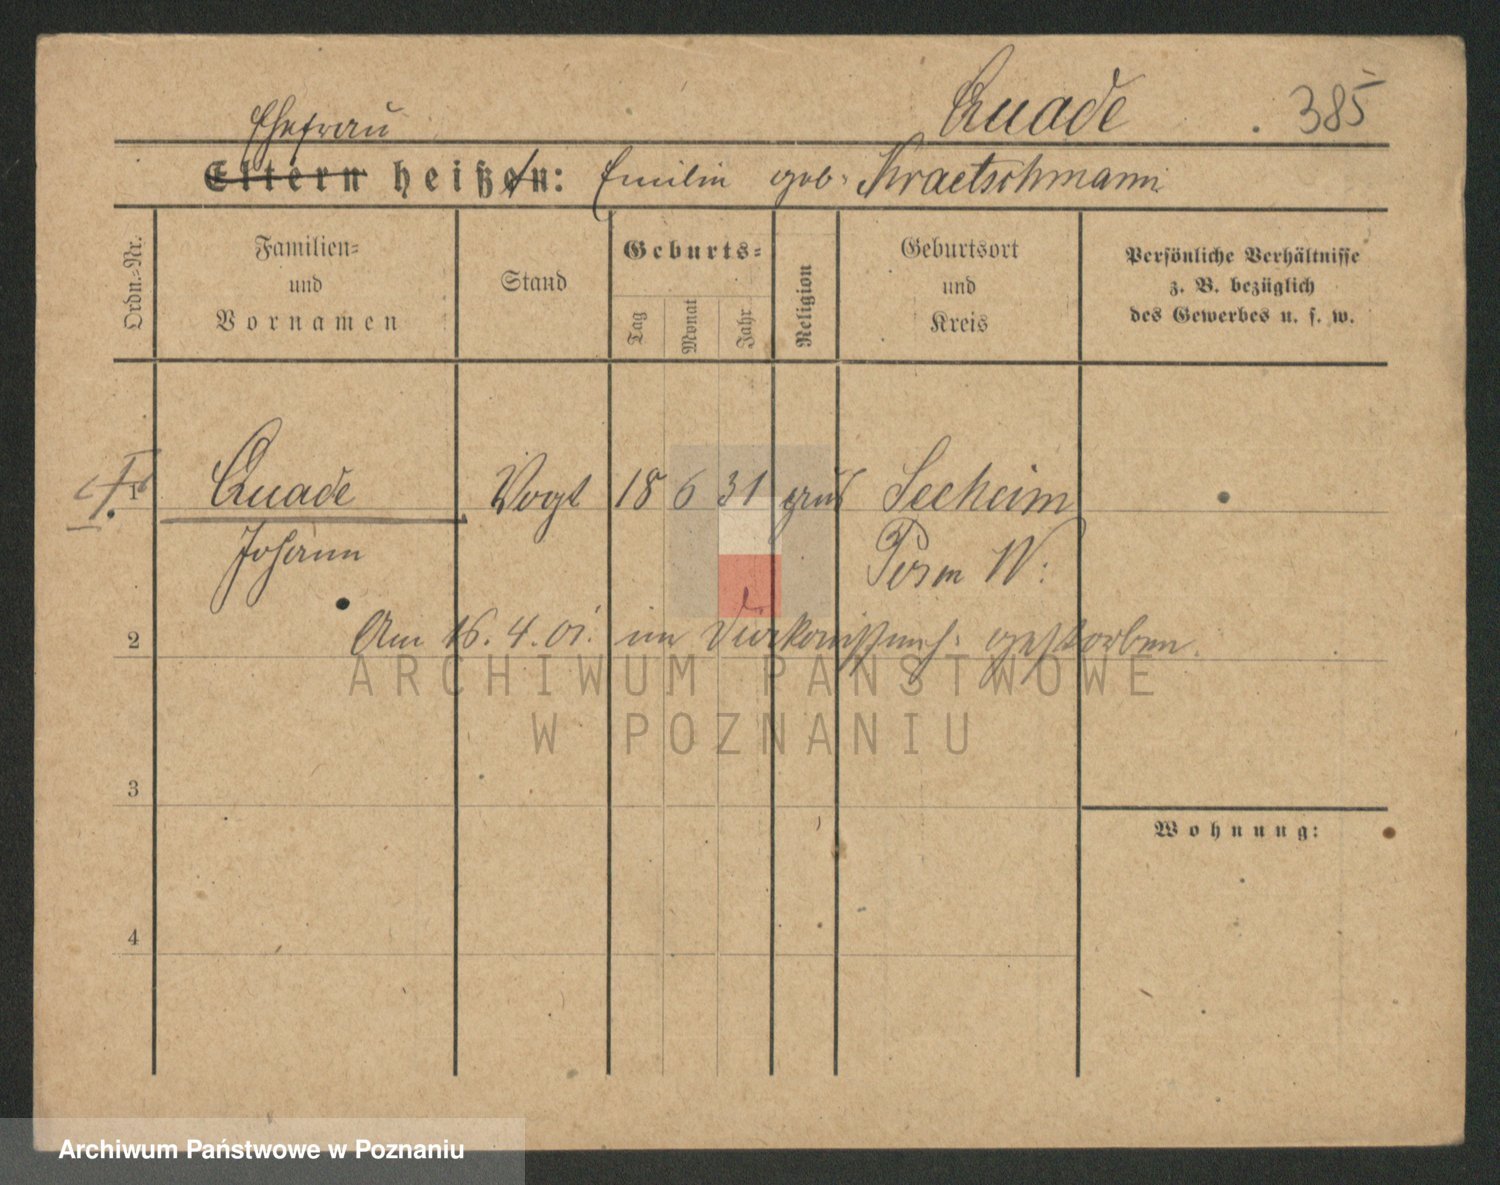 Quade. 385
Ehefrau
Eltern heißen: Emilie geb. Kraetschmann
Ordn.=Nr.
Familien=
und
Vornamen
Stand
Geburts=
Tag
Monat
Jahr
Religion
Geburtsort
und
Kreis
Persönliche Verhältnisse
z. B. bezüglich
des Gewerbes u. s. w.
1 Quade Vogt 18 6 31 Seeheim
Johann Posen W.
2 Am 16. 4. 01. im gestorben.
ARCHIWUM PAŃSTWOWE
W POZNANIU
3
Wohnung:
4
Archiwum Państwowe w Poznaniu